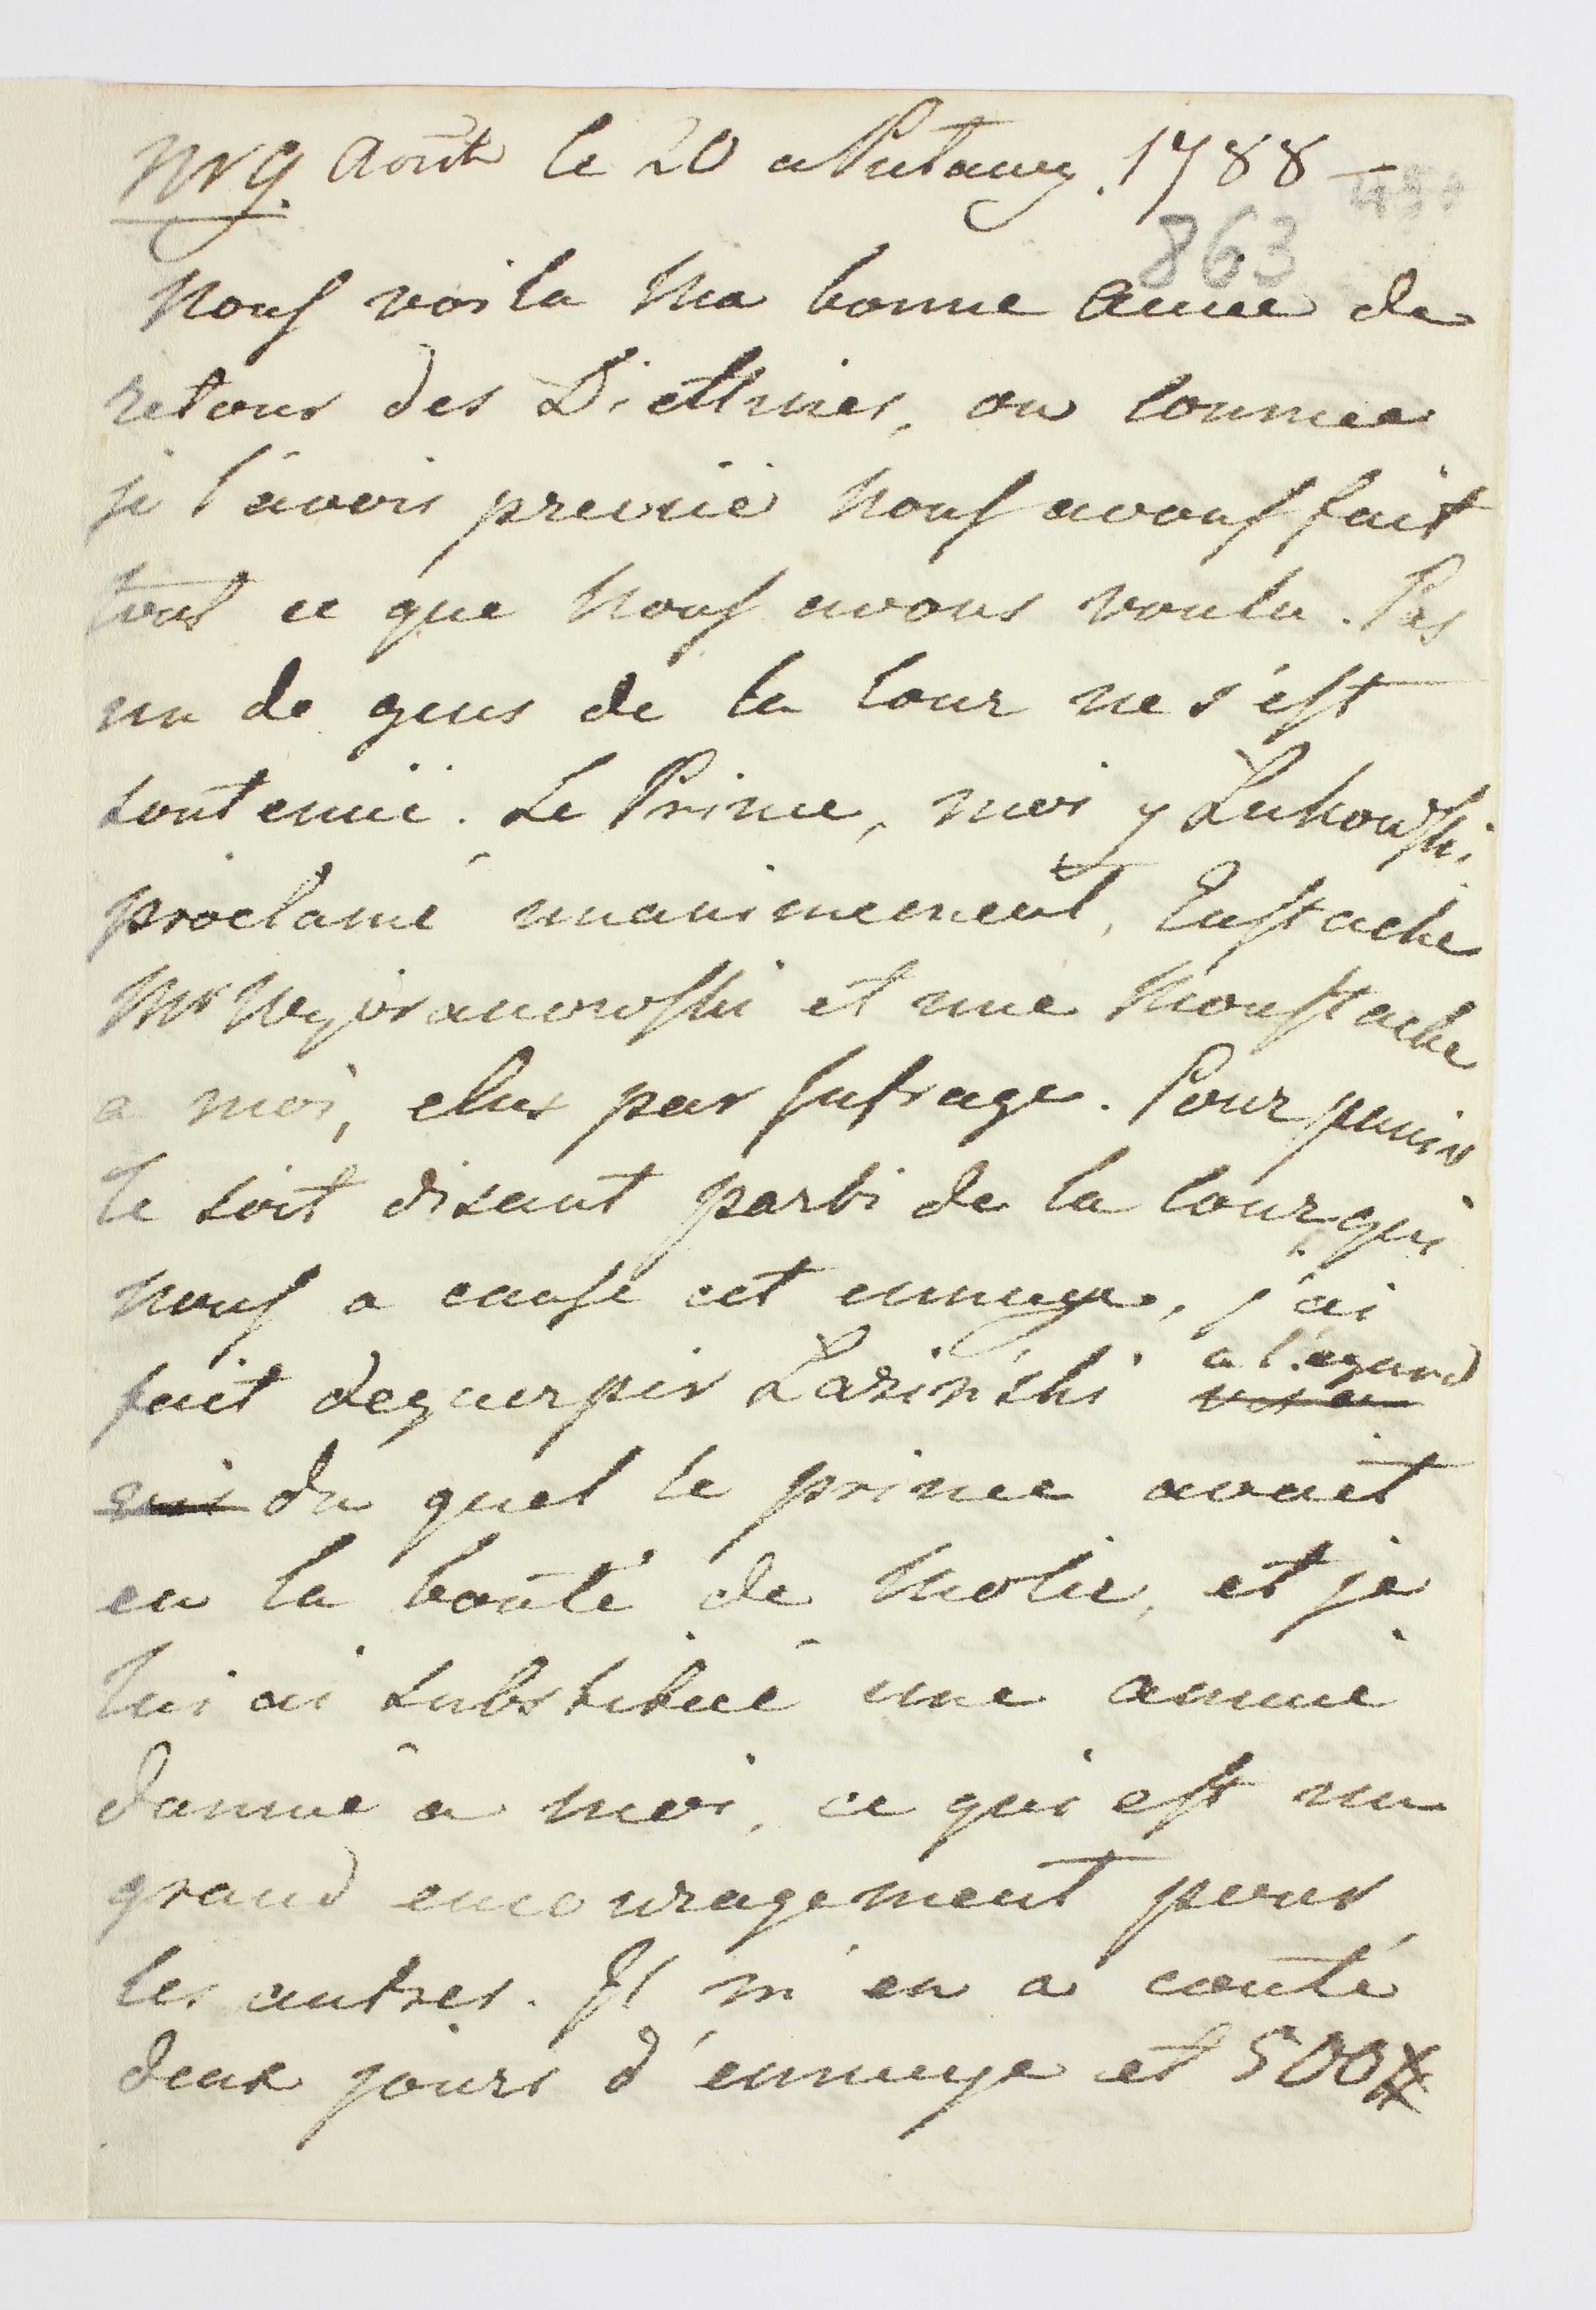 Nr 9. Août le 20 a Pulawy. 1788 –
863
Nous voila Ma bonne Amie de
retour des Diettines, ou comme
je l'avois prevüe Nous avons fait
tout ce que Nous avons voulu. Pas
un de gens de la Cour ne s'est
soutenüe. Le Prince, moi y Lukowski
proclamé unanimement, Eustache
Mr Weÿsranowski et une Moustache
a moi, elus par sufrage. Pour punir
le soit disant parti de la Cour, qui
Nous a cause cet ennuye, j'ai
fait deguerpir Lasinśki a l'egard
du quel le prince avait
eu la bonté de Molir, et je
lui ai substitué une amme
damné a moi, ce qui est un
grand encouragement pour
les autres. Il m'en a couté
deux jours d'ennuye et 500 #